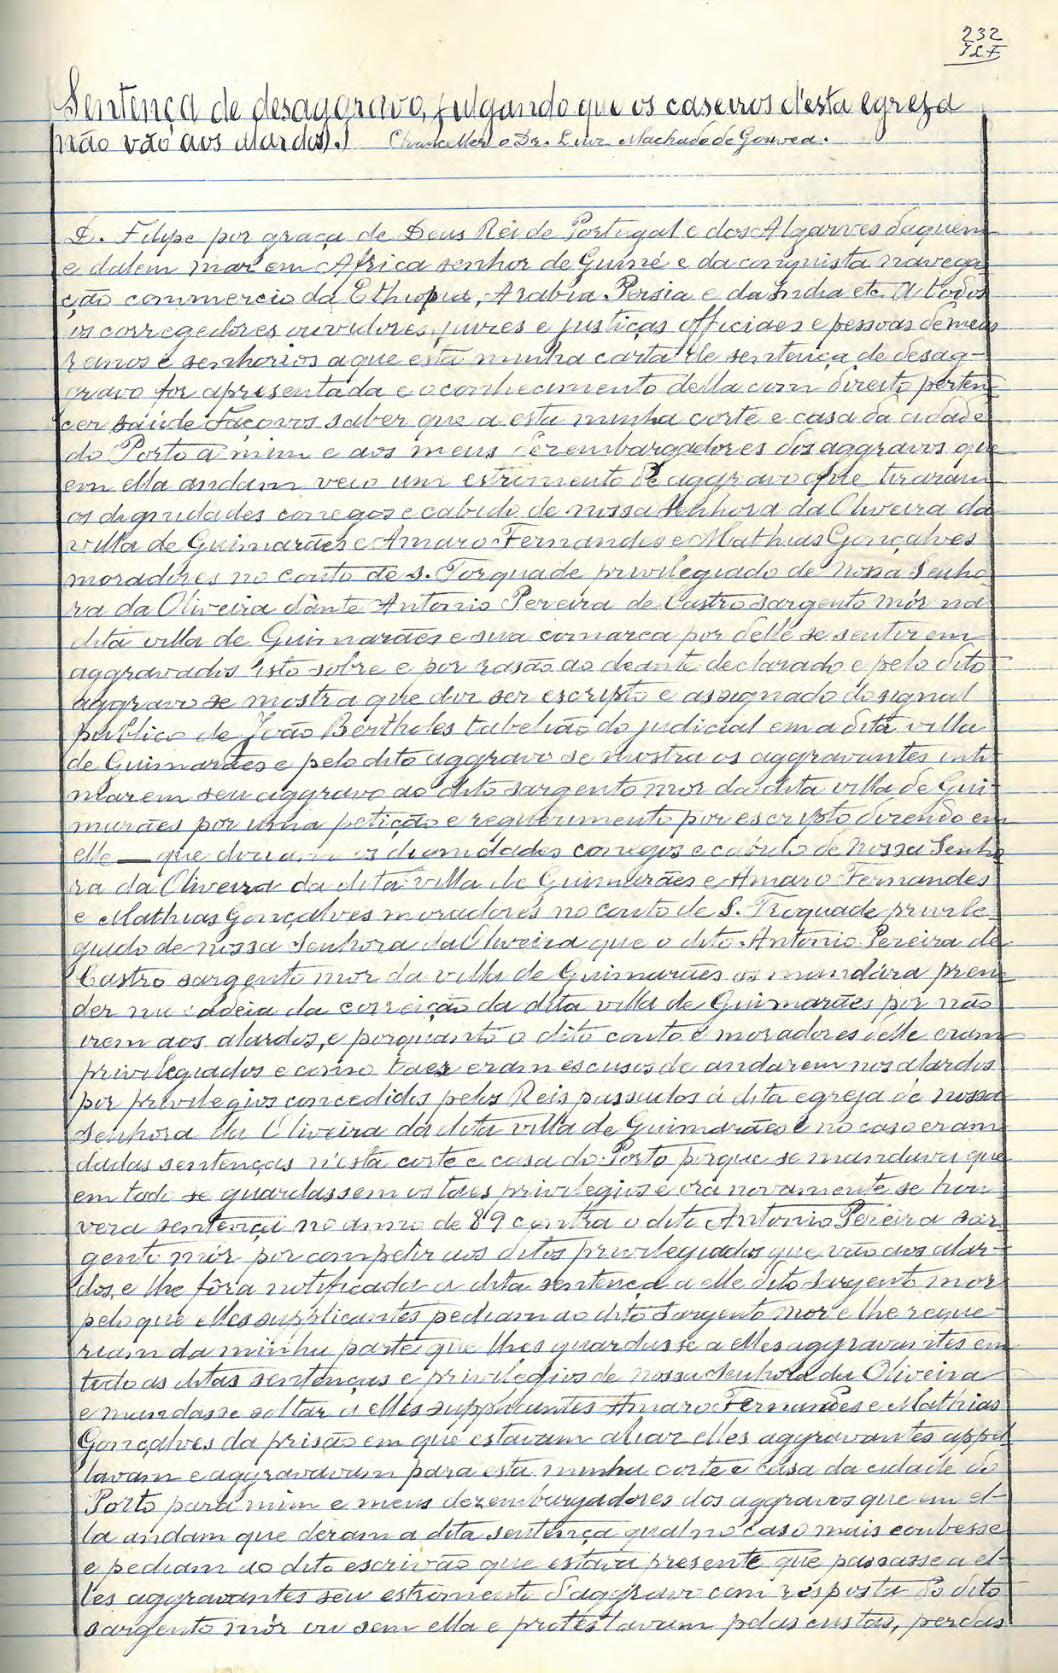 232
Sentença de desaggravo, julgando que os caseiros d'esta egreja
não vão aos alardos.) Chanceller o Dr. Luiz Machado de Gouvea.
D. Filipe por graça de Deus Rei de Portugal e dos Algarves daquem
e dalem mar em Africa senhor de Guiné e da conquista navega
ção commercio da Ethiopia, Arabia Persia e da India etc. A todos
os corregedores ouvidores, juizes e justiças officiaes e pessoas de meus
reinos e senhorios a que esta minha carta de sentença de desag-
gravo for apresentada e o conhecimento della com direito perten
cer saúde Faço vos saber que a esta minha corte e casa da cidade
do Porto a mim e aos meus Dezembargadores dos aggravos que
em ella andam veio um estromento de aggravo que tiraram
os dignidades conegos e cabido de nossa Senhora da Oliveira da
villa de Guimarães e Amaro Fernandes e Mathias Gonçalves
moradores no couto de S. Torquade privileguiado de Nossa Senho
ra da Oliveira dante Antonio Pereira de Castro sargento mór na
dita villa de Guimarães e sua comarca por delle se sentirem
aggravados isto sobre e por rasão ao deante declarado e pelo dito
aggravo se mostra que diz ser escripto e assignado do signal
publico de João Bertholes tabelião do judicial em a dita villa
de Guimarães e pelo dito aggravo se mostra os aggravantes inti
marem seu aggravo ao dito sargento mor da dita villa de Gui-
marães por uma petição e requerimento por escripto dizendo em
elle — que diziam os dignidades conegos e cabido de Nossa Senho
ra da Oliveira da dita villa de Guimarães e Amaro Fernandes
e Mathias Gonçalves moradores no couto de S. Troquade privile-
guiado de nossa Senhora da Oliveira que o dito Antonio Pereira de
Castro sargento mor da villa de Guimarães os mandára pren
der na cadeia da correição da dita villa de Guimarães por não
irem aos alardos, e porquanto o dito couto e moradores delle eram
privileguiados e como taes eram escusos de andarem nos alardos
por privilegios concedidos pelos Reis passados á dita egreja de nossa
Senhora da Oliveira da dita villa de Guimarães e no caso eram
dadas sentenças n'esta corte e casa do Porto porque se mandava que
em todo se guardassem os taes privilegios e óra novamente se hou
vera sentença no anno de 89 contra o dito Antonio Pereira sar
gento mór por competir aos ditos privileguiados que vão aos alar-
dos, e lhe fôra notificada a dita sentença a elle dito sargento mor
pelo que elles supplicantes pediam ao dito sargento mor e lhe reque-
riam da minha parte que lhes guardasse a elles aggravantes em
tudo as ditas sentenças e privilegios de nossa senhora da Oliveira
e mandasse soltar a elles supplicantes Amaro Fernandes e Mathias
Gonçalves da prisão em que estavam aliaz elles aggravantes appel
lavam e aggravavam para esta minha corte e casa da cidade do
Porto para mim e meus dezembargadores dos aggravos que em el-
la andam que deram a dita sentença qual no caso mais coubesse
e pediam ao dito escrivão que estava presente que passasse a el-
les aggravantes seu estromento d'aggravo com resposta do dito
sargento mór ou sem ella e protestavam pelas custas, perdas